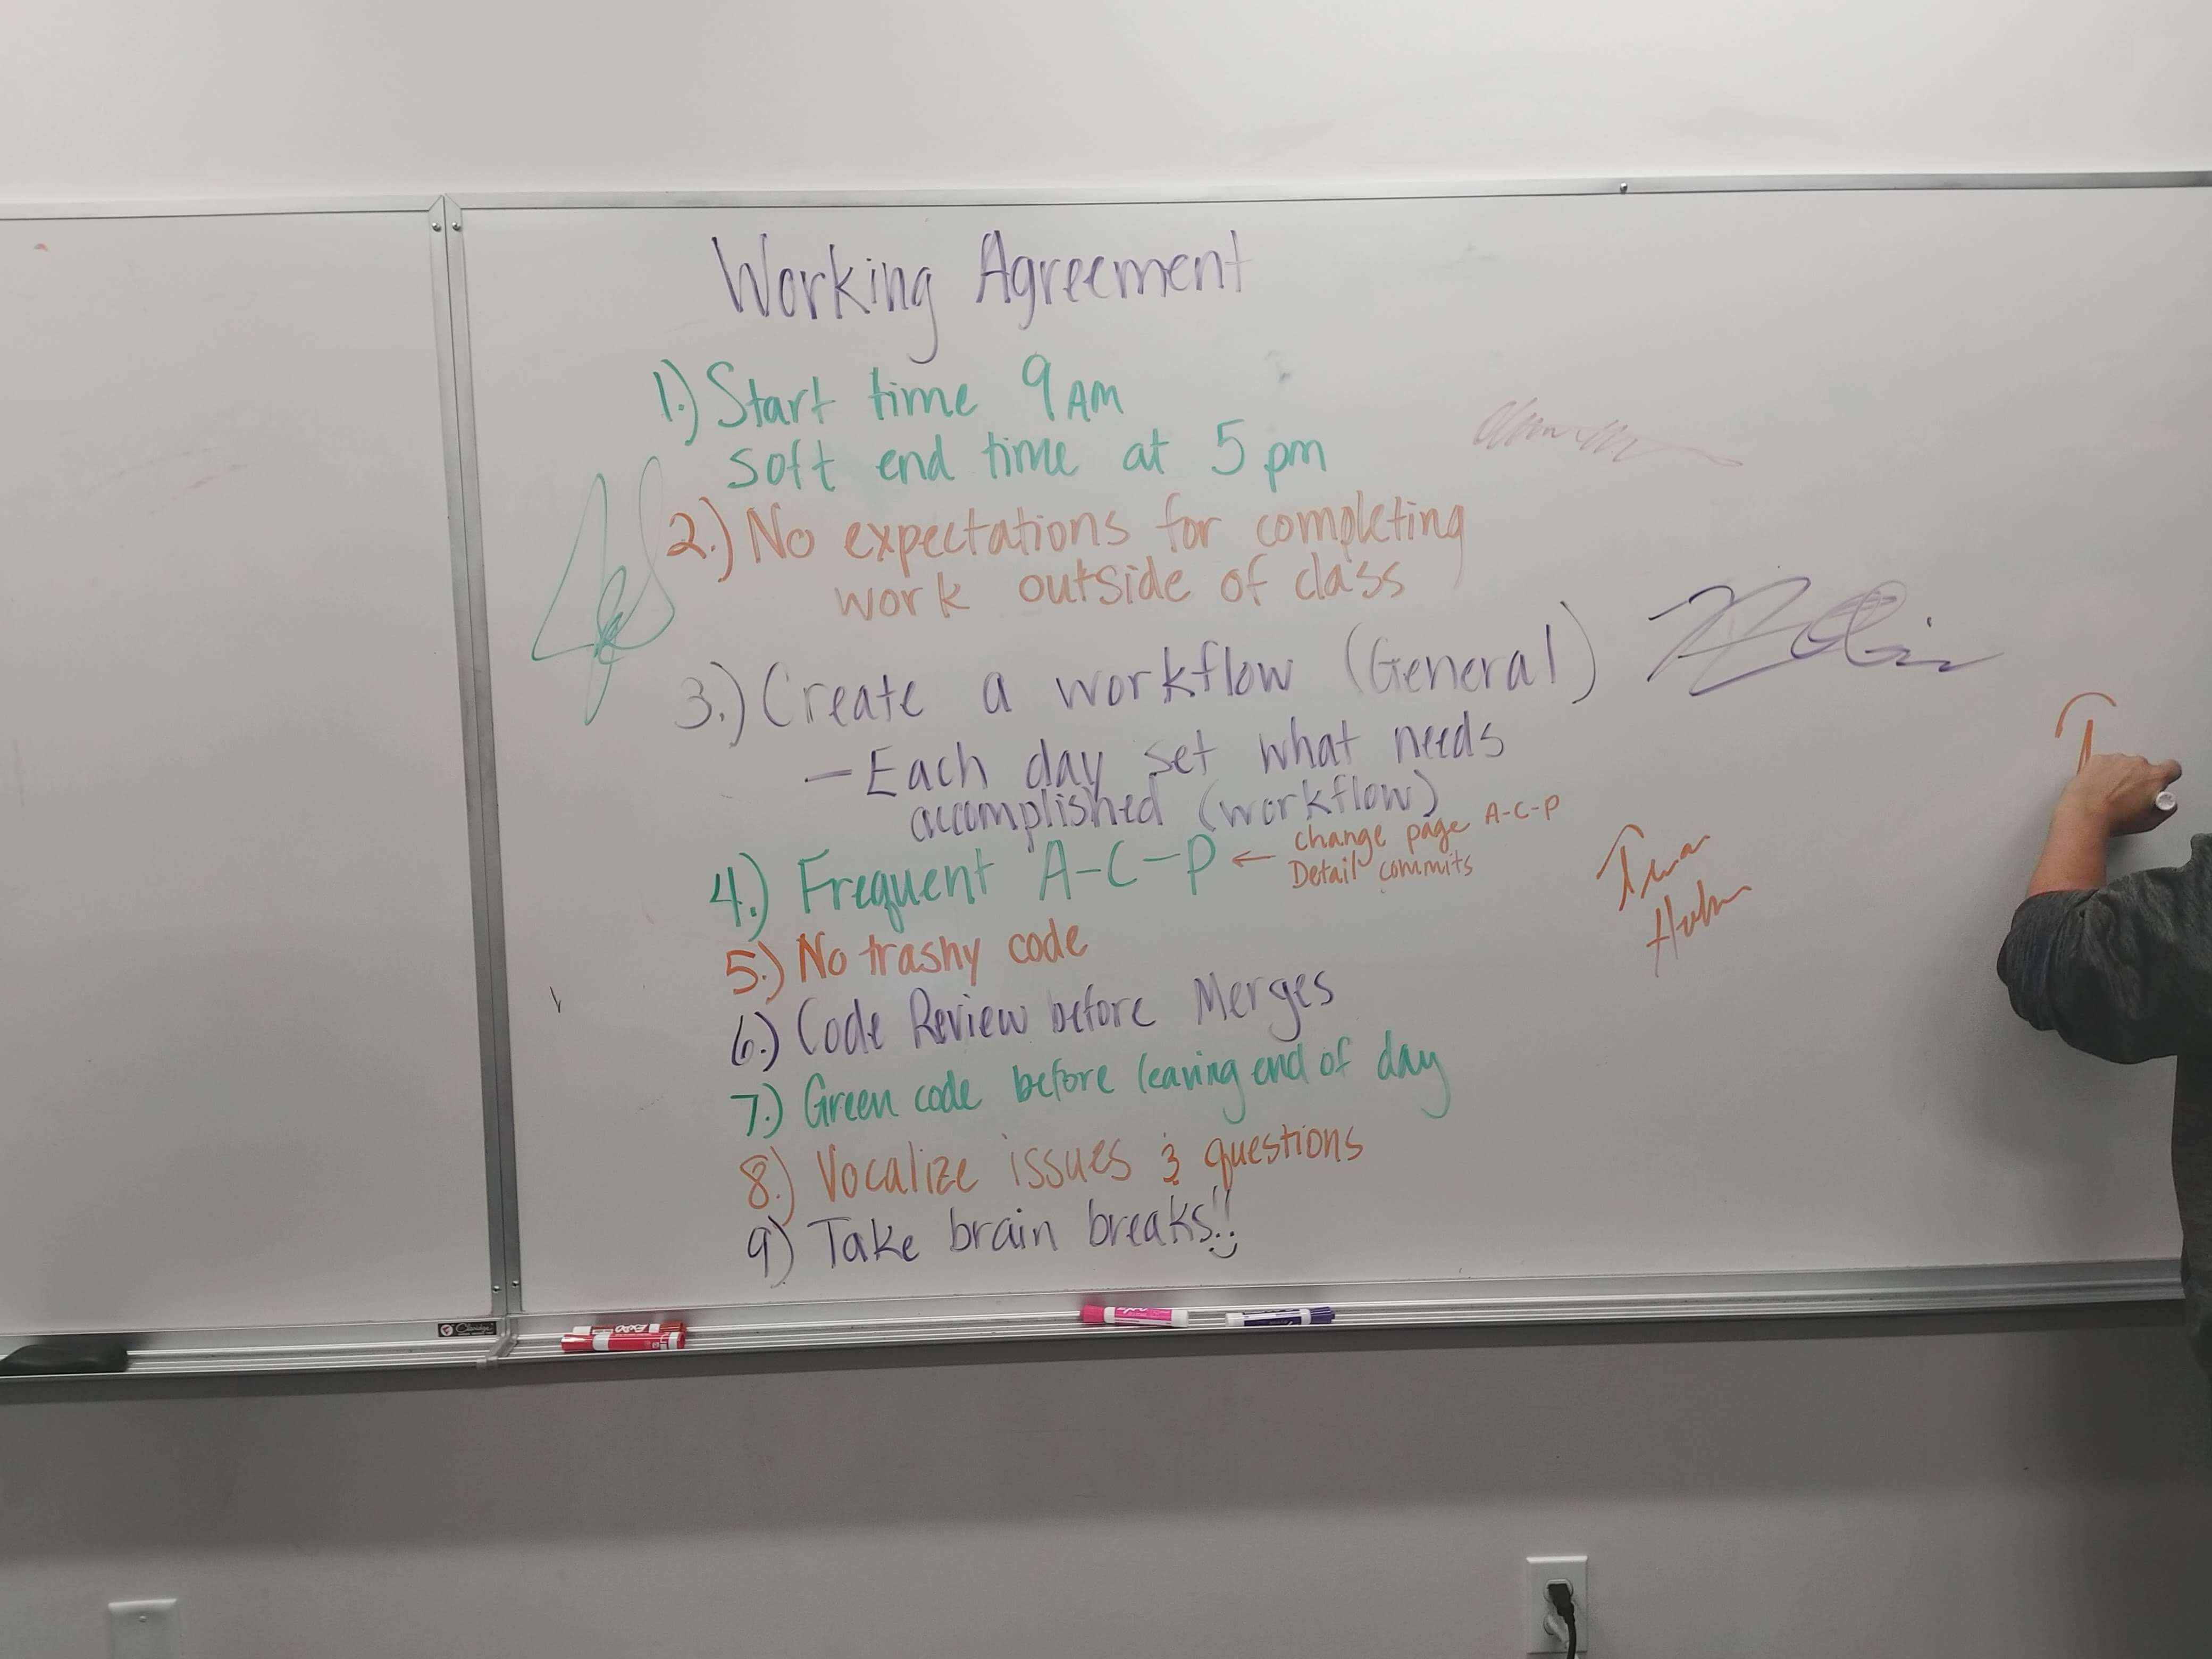 Working Agreement
1.) Start time 9 AM
soft end time at 5 pm
2.) No expectations for completing
work outside of class
3.) Create a workflow (General)
- Each day set what needs
accomplished (workflow)
4.) Frequent A-C-P ← change page A-C-P
Detail commits
5.) No trashy code
6.) Code Review before Merges
7.) Green code before leaving end of day
8.) Vocalize issues & questions
9) Take brain breaks!!